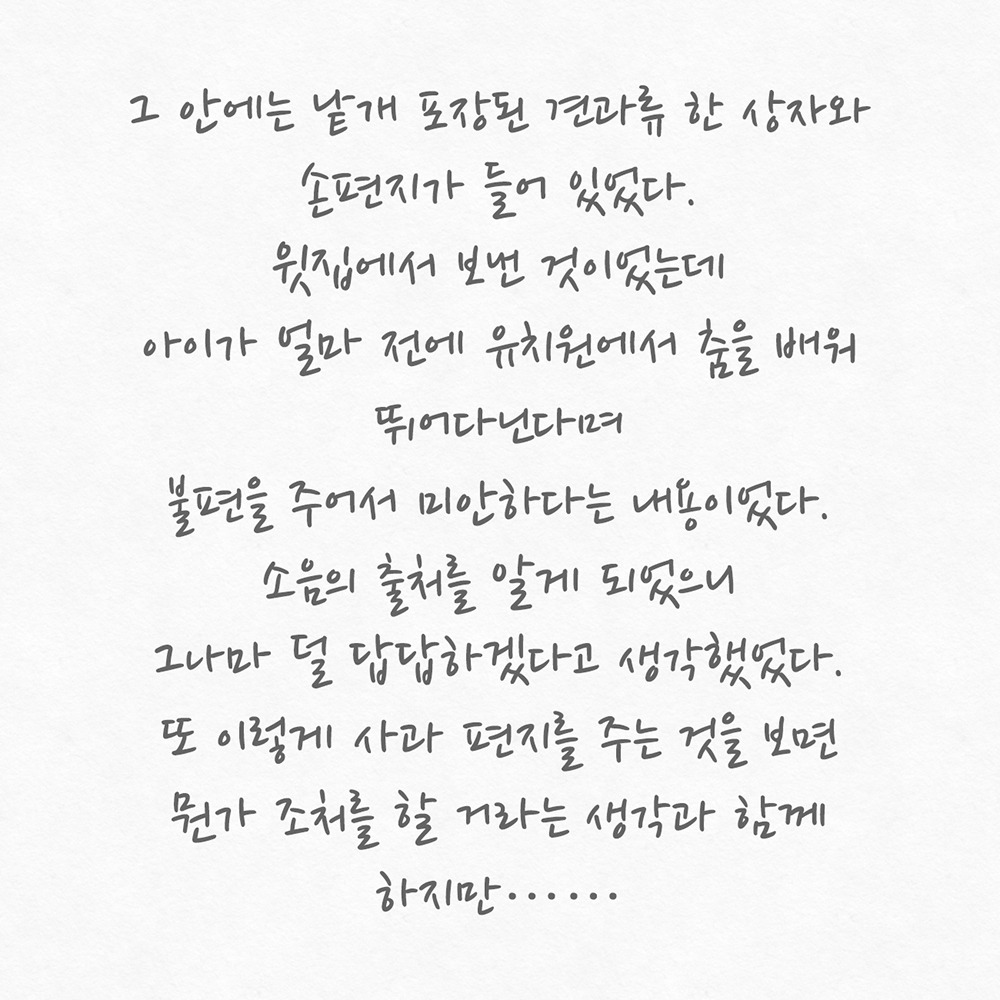 그 안에는 낱개 포장된 견과류 한 상자와
손편지가 들어 있었다.
윗집에서 보낸 것이었는데
아이가 얼마 전에 유치원에서 춤을 배워
뛰어다닌다며
불편을 주어서 미안하다는 내용이었다.
소음의 출처를 알게 되었으니
그나마 덜 답답하겠다고 생각했었다.
또 이렇게 사과 편지를 주는 것을 보면
뭔가 조처를 할 거라는 생각과 함께
하지만······